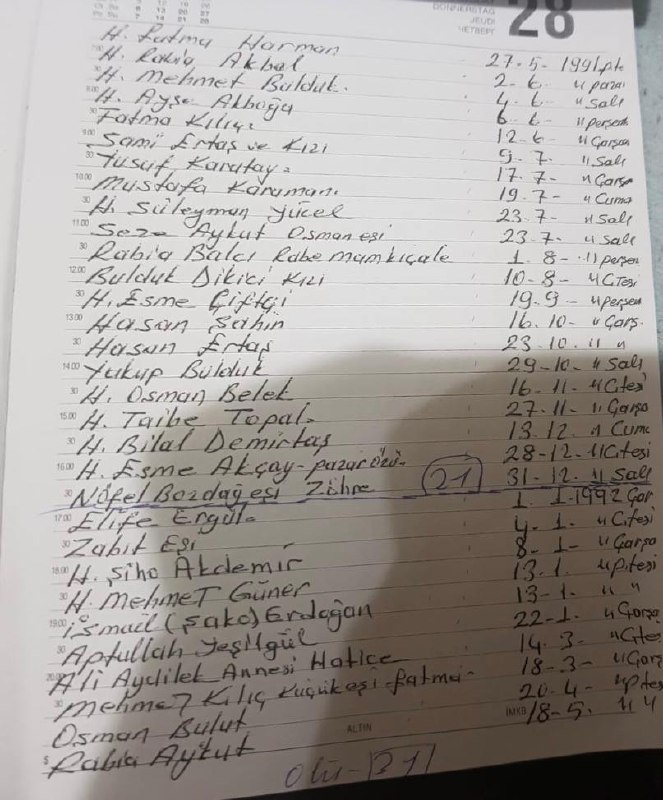 DONNERSTAG
JEUDI
ЧЕТВЕРГ
28
H. Fatma Harman 27-5-1991 pte
H. Rabia Akbal 2-6 " pazar
H. Mehmet Bulduk. 4-6 " salı
H. Ayşe Akboğa 6-6- " perşem
Fatma Kılıç. 12-6 " Çarşa
Sami Ertaş ve Kızı 9-7. " Salı
Yusuf Karatay. 17.7- " Çarş
Mustafa Karaman. 19.7- " Cuma
H. Süleyman Yücel 23.7- " Salı
Aykut Osman eşi 23.7- " Salı
Rabia Balcı 1.8- " perşem
Bulduk Dikici Kızı 10-8- " C.Tesi
H. Esme Çiftçi 19-9- " perşem
Hasan Şahin 16.10- " Çarş.
Hasan Ertaş 23.10. " "
Yukup Bulduk 29-10- " Salı
H. Osman Belek 16.11- " Ctesi
H. Taibe Topal. 27.11- " Çarşa
H. Bilal Demirtaş 13.12. " Cuma
H. Esme Akçay-pazarözü. 28-12- " Ctesi
Nöfel Bozdağ eşi Zöhre 21 31-12. " Salı
Elife Ergül. 1.1-1992 Çar
Zabit Eşi 4-1. " C.tesi
H. Şiho Akdemir 8-1- " Çarşa
H. Mehmet Güner 13.1. " P.tesi
İsmail (Şako) Erdoğan 13-1. " "
Aptullah Yeşilgül 22-1. " Çarşa
Ali Aydilek Annesi Hatice 14.3- " Ctes
Mehmet Kılıç küçük eşi fatma. 18-3- " Çarş
Osman Bulut 20-4- " ptes
Rabia Aykut 18-5. " "
ALTIN IMKB
Ölü-31